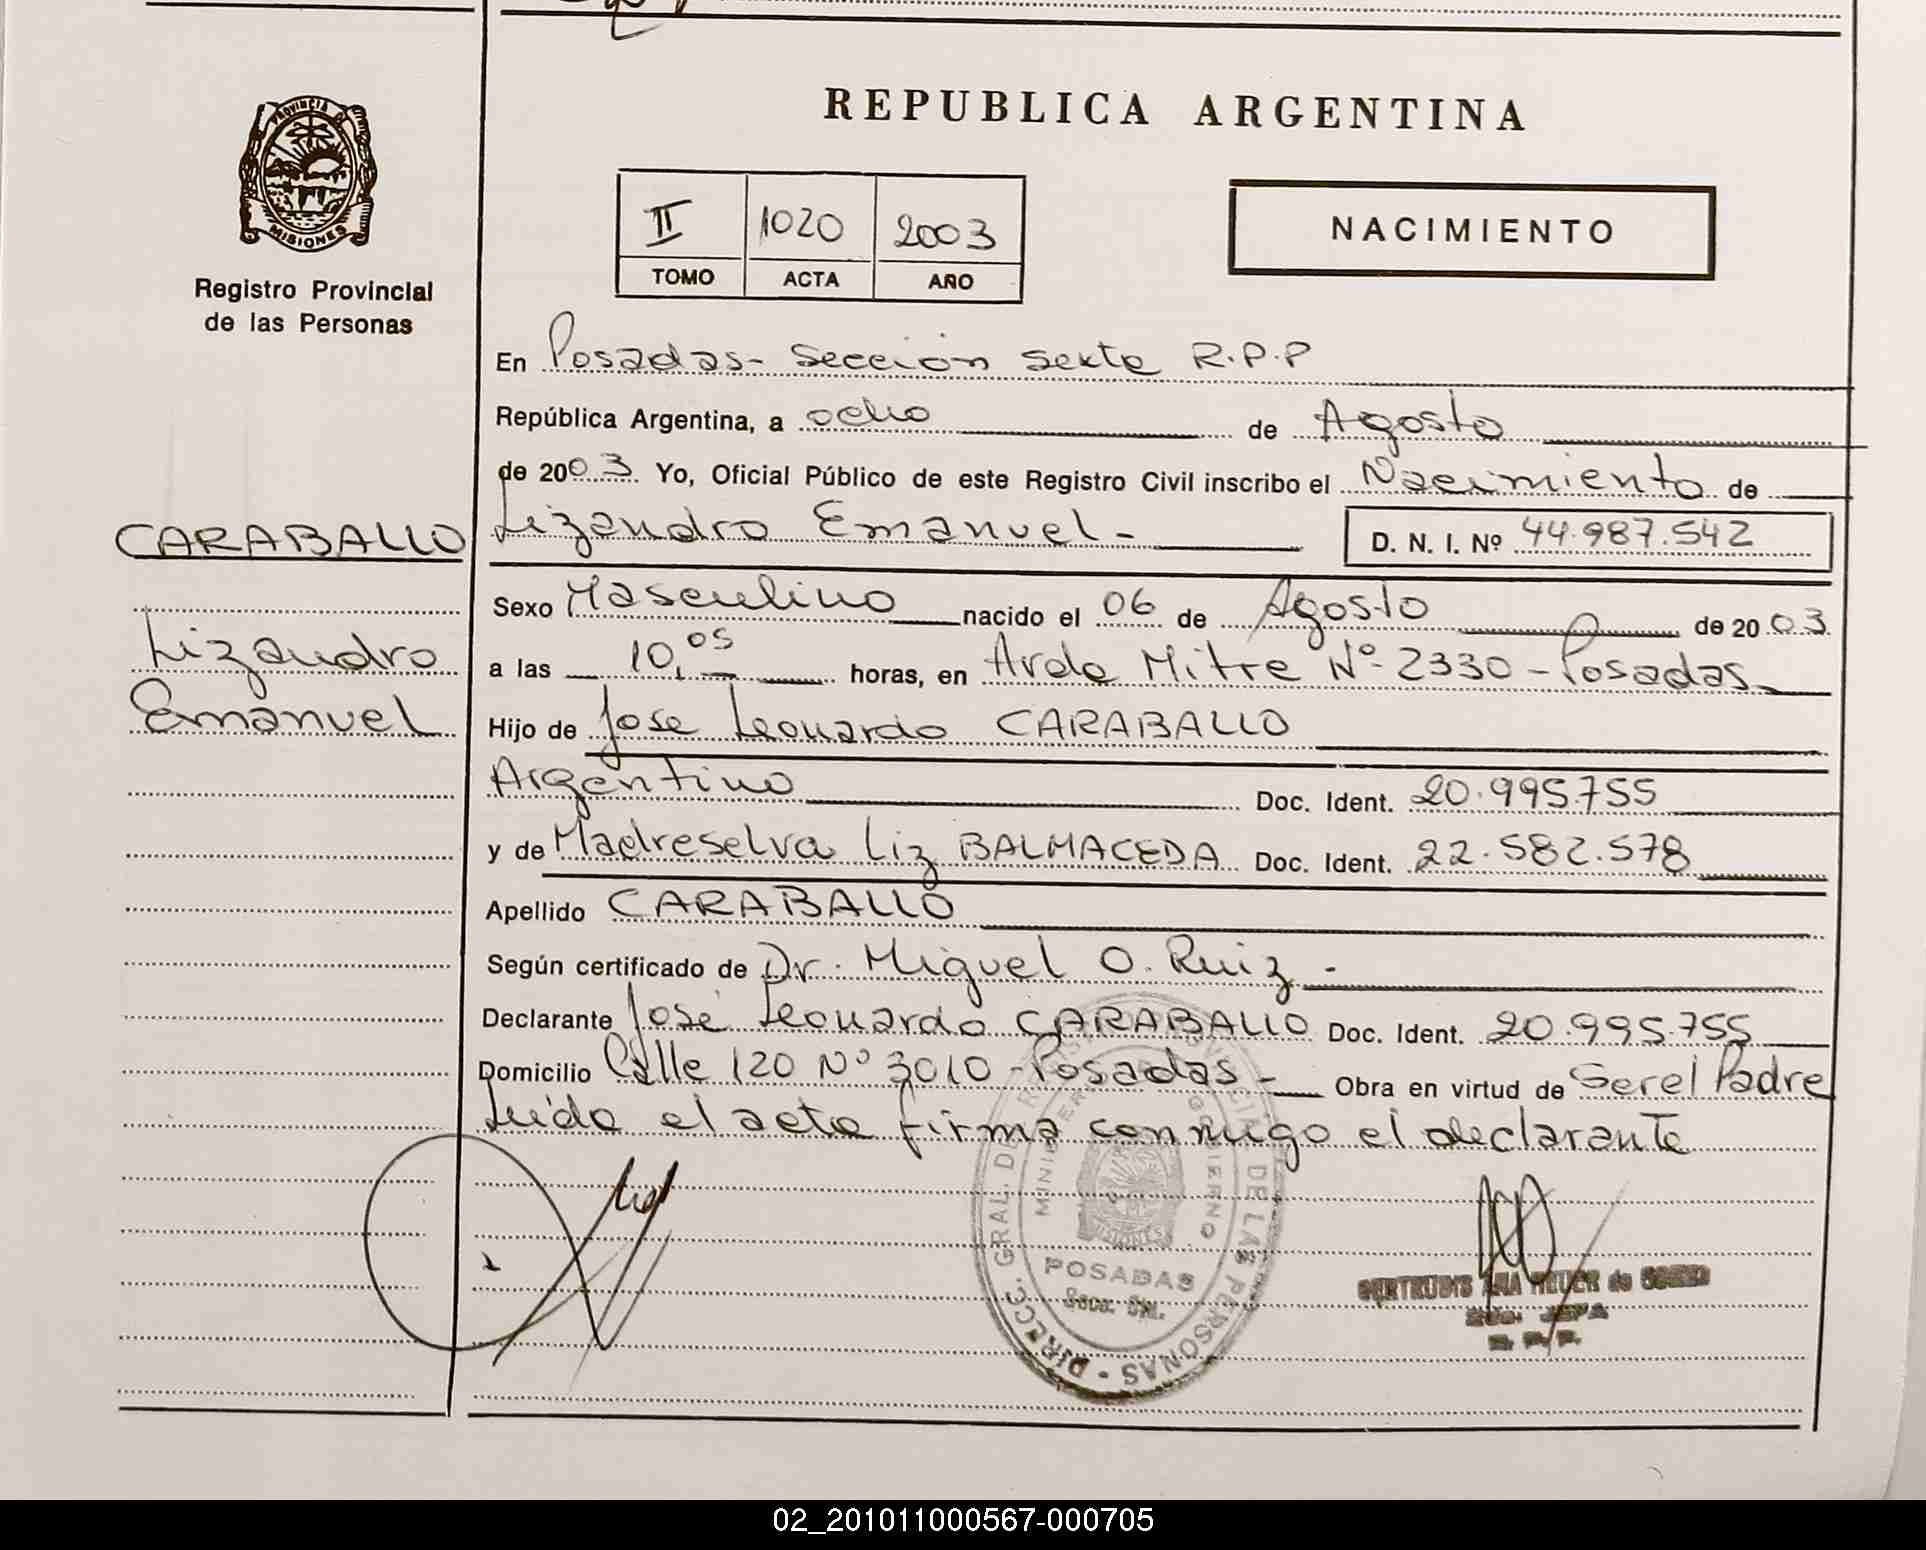 REPUBLICA ARGENTINA
PROVINCIA DE
MISIONES
Registro Provincial
de las Personas
II 1020 2003
TOMO ACTA AÑO
NACIMIENTO
En Posadas- Sección Sexta R.P.P
República Argentina, a ocho de Agosto
de 2003 Yo, Oficial Público de este Registro Civil inscribo el Nacimiento de
Lizandro Emanuel-
D. N. I. Nº 44.987.542
CARABALLO
Lizandro
Emanuel
Sexo Masculino nacido el 06 de Agosto de 2003
a las 10,05 horas, en Avda Mitre Nº 2330 - Posadas
Hijo de Jose Leonardo CARABALLO
Argentino Doc. Ident. 20.995.755
y de Madreselva Liz BALMACEDA Doc. Ident. 22.582.578
Apellido CARABALLO
Según certificado de Dr. Miguel O. Ruiz -
Declarante José Leonardo CARABALLO Doc. Ident. 20.995.755
Domicilio Calle 120 Nº 3010 - Posadas - Obra en virtud de Ser el Padre
Leída el acta firma conmigo el declarante
DIRECC. GRAL. DE DE LAS PERSONAS
GOBIERNO
MISIONES
POSADAS
GERTRUDIS ANA de
JEFA
R. P. P.
02_201011000567-000705